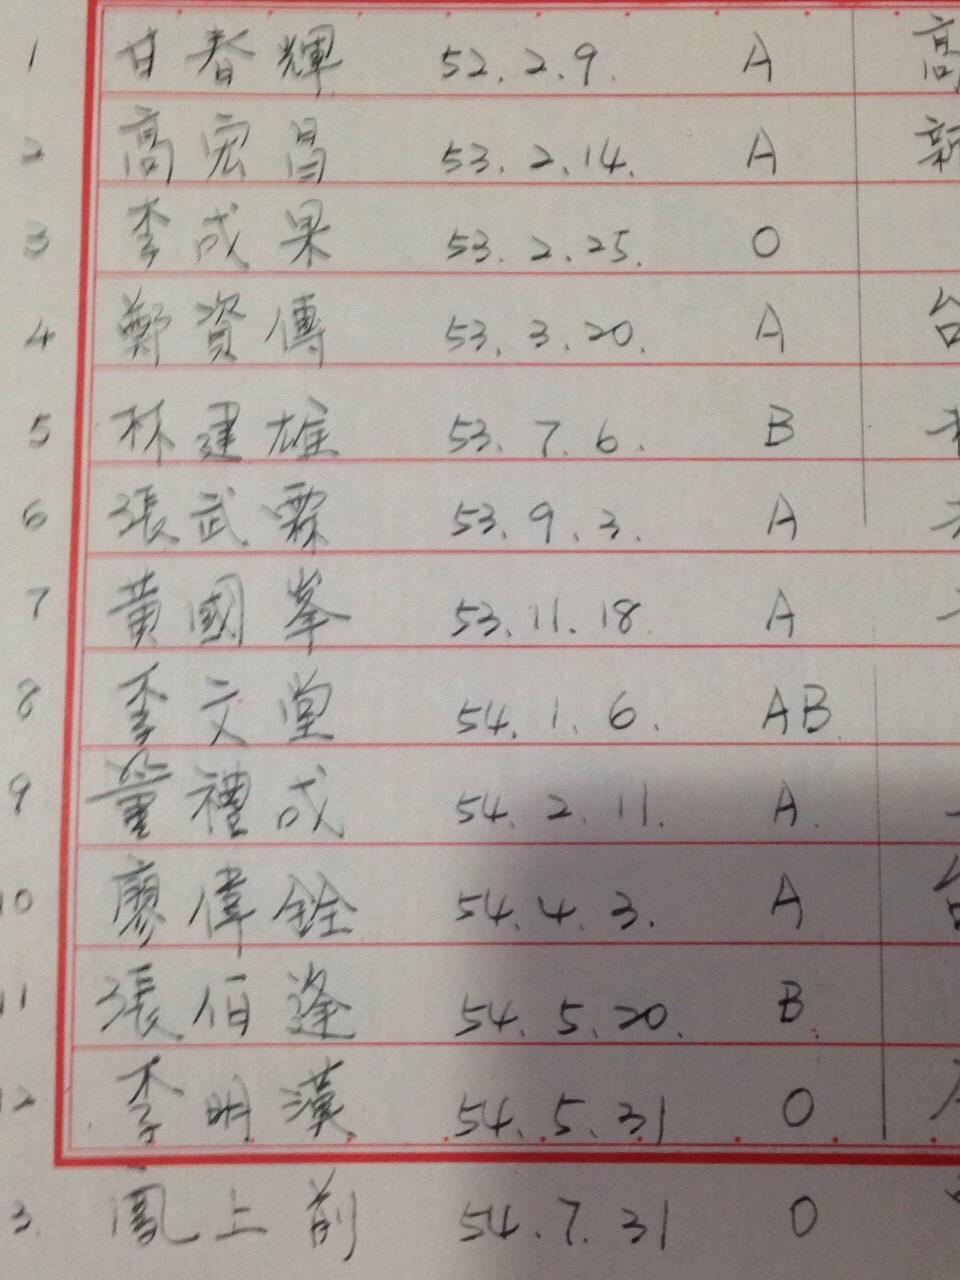 1 甘春輝 52.2.9. A 高
2 高宏昌 53.2.14. A 新
3 李成果 53.2.25. O
4 鄭資傳 53.3.20. A 台
5 林建雄 53.7.6. B
6 張武霖 53.9.3. A
7 黃國峯 53.11.18. A
8 李文堂 54.1.6. AB
9 董禮成 54.2.11. A.
10 廖偉銓 54.4.3. A 台
11 張伯逢 54.5.20. B.
12 李明漢 54.5.31 O
3. 鳳上前 54.7.31 O